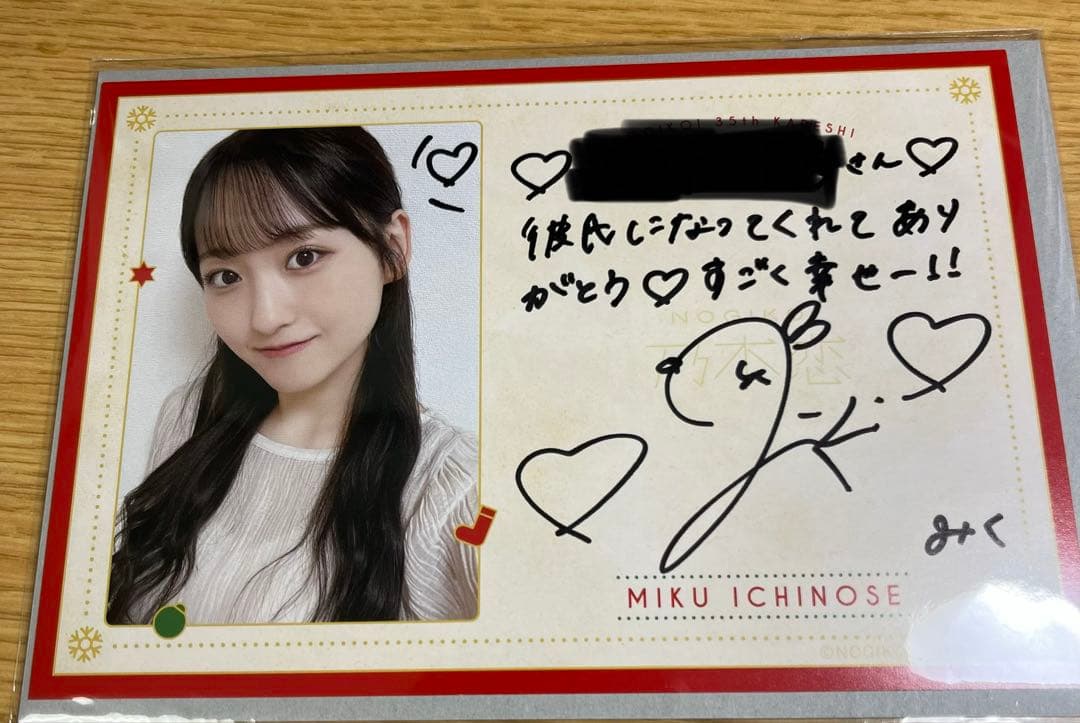 35th KARESHI
さん
彼氏になってくれてあり
がとう♡すごく幸せー!!
NOGIK
乃木恋
みく
MIKU ICHINOSE
©NOGIK